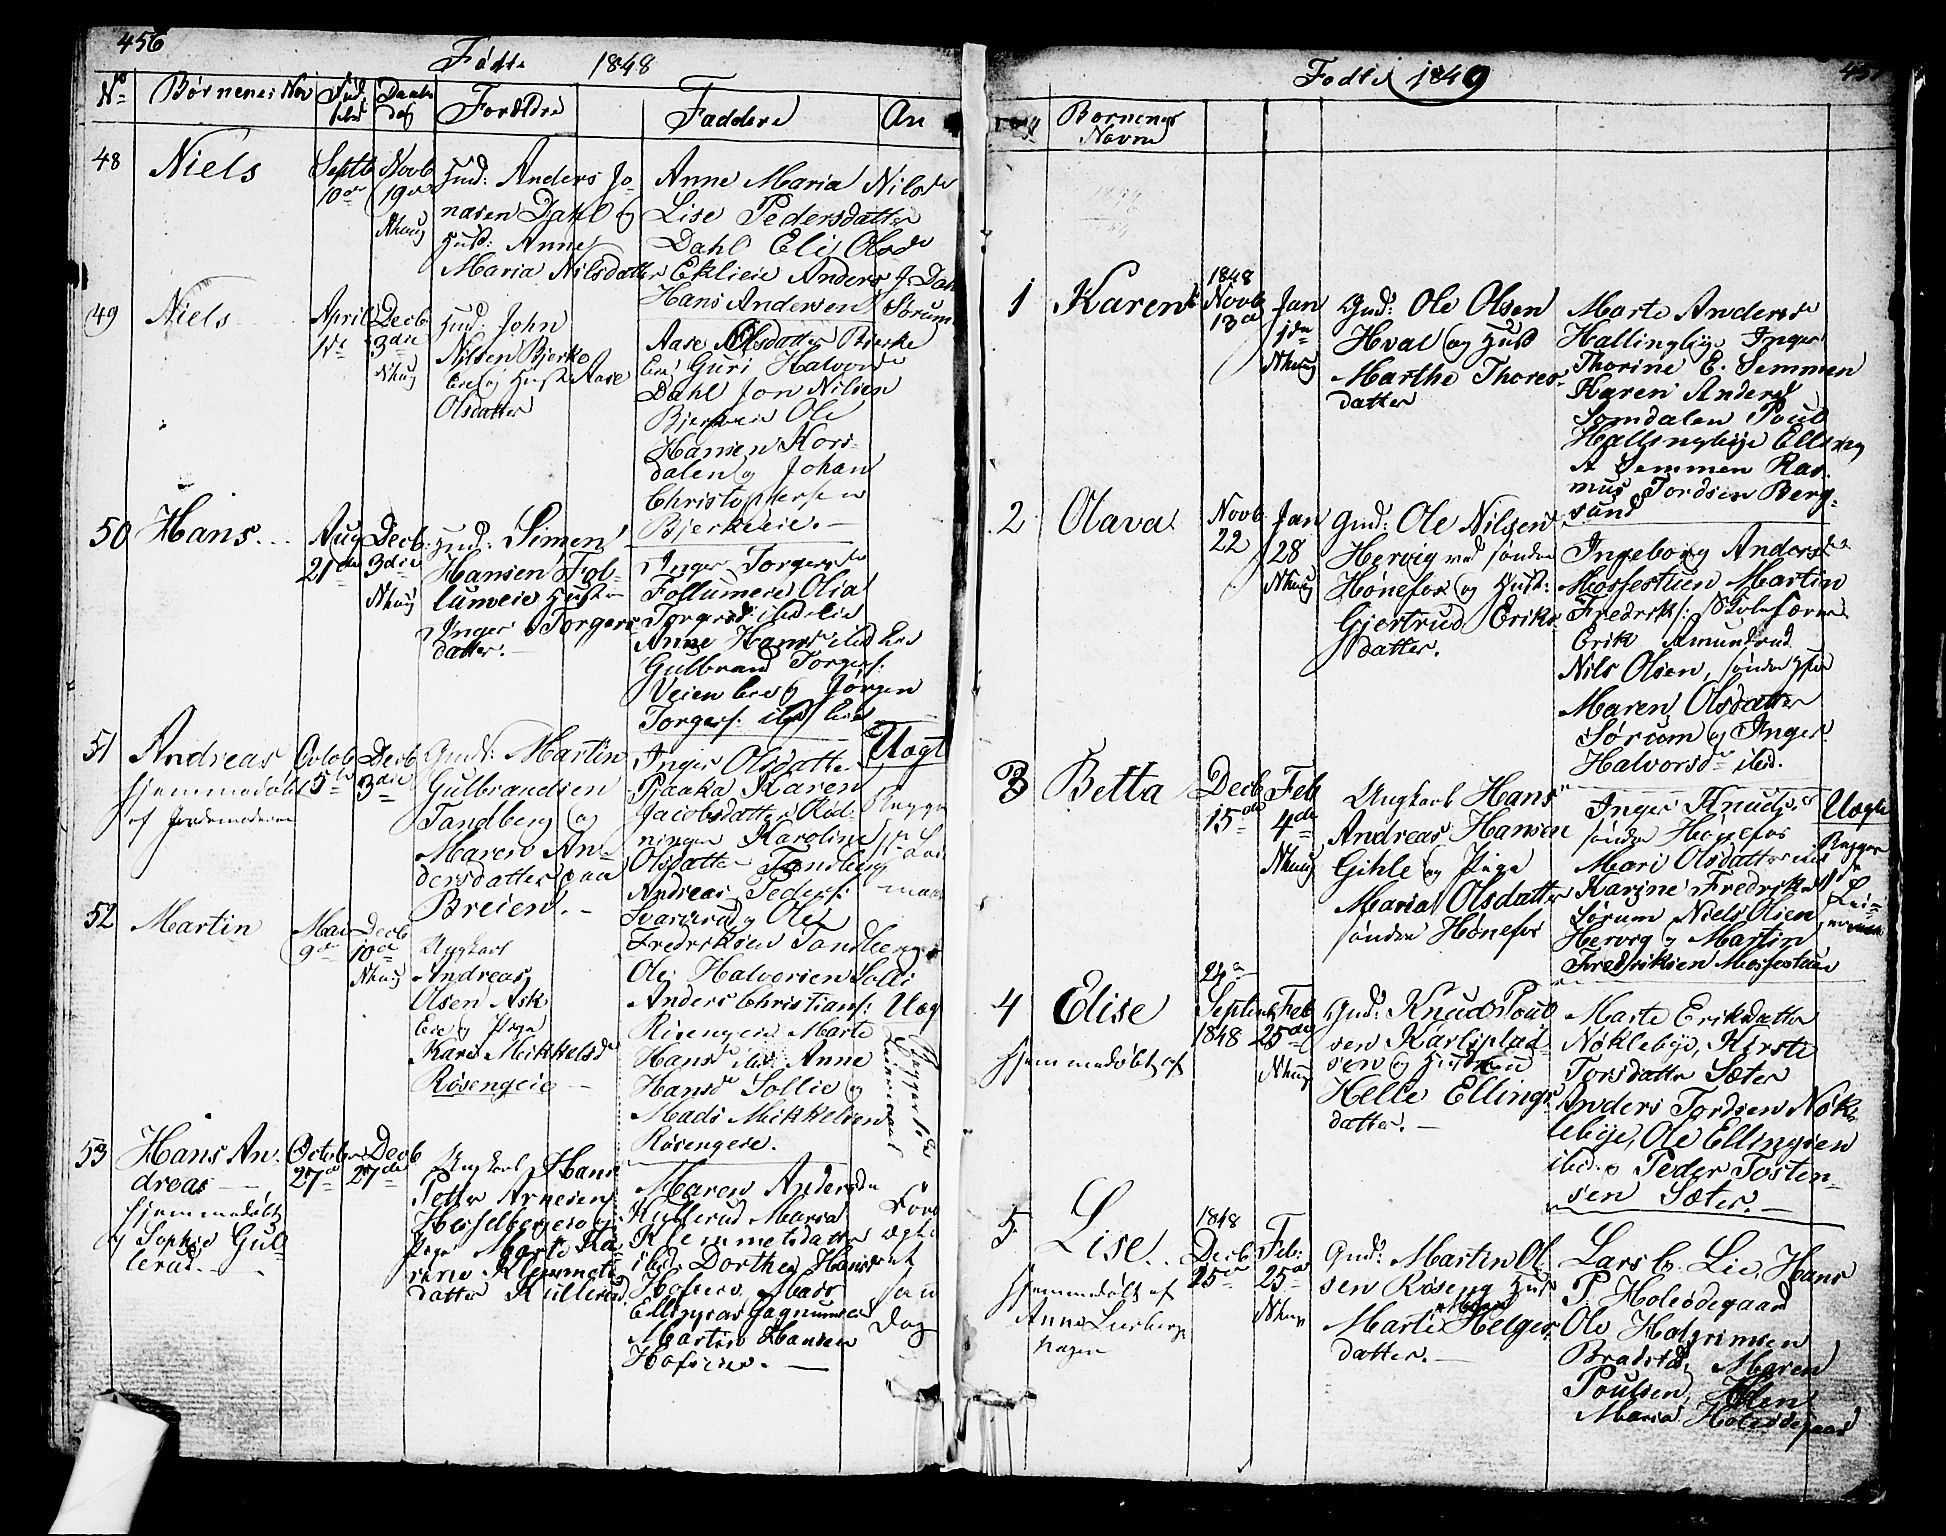 456
Fødte 1848
No Børnenes Nav Fød Daabs Forældre Faddere An
48 Niels Septb 10de Novb 19de Nhaug
Gmd: Anders Jo
nasen Dahl og
Hust: Anne
Maria Nilsdatter
Anne Maria Nilsdr
Lise Pedersdatter
Dahl Eli Olsdr
Eklieie Anders J. Dahl
Hans Andersen Sørum
49 Niels April 1ste Decb 3die Nhaug
Gmd: John
Nilsen Bjerke
Eie og Hust: Aase
Olsdatter
Aase Olsdatter Bjerke
Eie Guri Halvorsdr
Dahl Jon Nilsen
Bjerkeeie Ole
Hansen Kors-
dalen og Johan
Christophersen
Bjerkeeie. —
50 Hans Aug 21de Decb: 3die Nhaug
Gmd: Simen
Hansen Fol-
lumeie Hust:
Inger Torgers-
datter. —
Inger Torgersdr
Follumeie Olia
Torgersd: ibid Eie
Anne Hansdr ibid Eie
Gulbrand Torgers:
Veien Eie og Jørgen
Torgers: ibid Eie
51 Andreas Octob 5te Decb 3die
hjemmedøbt
af Jordemoderen
Gmd: Martin
Gulbrandsen
Tandberg og
Maren An-
dersdatter paa
Breien. —
Inger Olsdatter
Pjaaka Karen
Jacobsdatter Rød-
ningen Karoline
Olsdatter Tandberg
Andreas Peders:
Svarverud og Ole
Fredriksen Tandberg
Uægt
Begges
1ste Lei
maal
52 Martin Mai 9de Decb 10de Nhaug
Ungkarl
Andreas
Olsen Ask
Eie og Pige
Kari Mikkelsdr
Røsengeie —
Ole Halvorsen Solli
Anders Christians:
Risengeie Marte
Hansdr ibid Anne
Hansdr Sollie og
Mads Mikkelsen
Røsengeie.
Uægt
Begges 1ste
Leiermaal
53 Hans An- October 27de Decb 27de
dreas —
hjemmedøbt
af Sophie Gul-
lerud. —
Ungkarl Hans
Petter Arnesen
Hesselbergeie og
Pige Marte Ka-
rine Klemmets-
datter Kullerud.
Maren Andersdr
Kullerud Maria
Klemmetsdatter
ibid Dorthea Hansdr
Hofseie, Mads
Ellingsen Gagnumeie
Martin Hansen
Hofseie. —
457
Fødte 1849
Børnenes
Navne
1 Karen 1848 Novb 13de Jan 1ste Nhaug
Gmd: Ole Olsen
Hval og Hust
Marthe Thores-
datter
Marte Andersdr
Hallingbye Inger
Thorine E. Semmen
Karen Andersd
Somdalen Poul
Hallingbye Ellseg
A Semmen Ras-
mus Tordsen Berg-
sund
2 Olava Novb 22 Jan 28 Nhaug
Gmd: Ole Nilsen
Hervig ved søndre
Hønefos og Hust:
Gjertrud Eriks-
datter.
Ingeborg Andersdr
Mosfestuen Martin
Fredriks:
Erik Amundrud
Nils Olsen, søndre Hfos
Maren Olsdatter
Sørum og Inger
Halvorsdr ibid.
3 Betta Decb 15de Feb 4de Nhaug
Ungkarl Hans
Andreas Hansen
Gihle og Pige
Maria Olsdatter
søndre Hønefos
Inger Knudsdr
søndre Hønefos
Mari Olsdatter ibid
Karine Fredriksd
Sørum Niels Olsen
Hervig og Martin
Fredriksen Mosfestuen
Uægte
Begges
1ste Lei-
ermaal
4 Elise 24de Septemb 1848 Feb 25de Nhaug
hjemmedøbt af
Gmd: Knud Poul
sen Karlsplad-
sen og Hustru
Helle Ellings-
datter. —
Marte Eriksdatter
Nøklebye, Kirste
Torsdatter Sæter
Anders Tordsen Nøk-
lebye, Ole Ellingsen
ibid. og Peder Tosten-
sen Sæter. —
5 Lise 1848 Decb 25de Feb: 25de Nhaug
hjemmedøbt af
Anne Lusberg-
hagen
Gmd: Martin Ol
sen Røseng Hust
Marte Maria Helges-
datter. —
Lars C. Lie, Hans
P. Holesdegaard
Ole Halgrimsen
Bradsted, Maren
Poulsen, Helen
Maria Holesdegaard